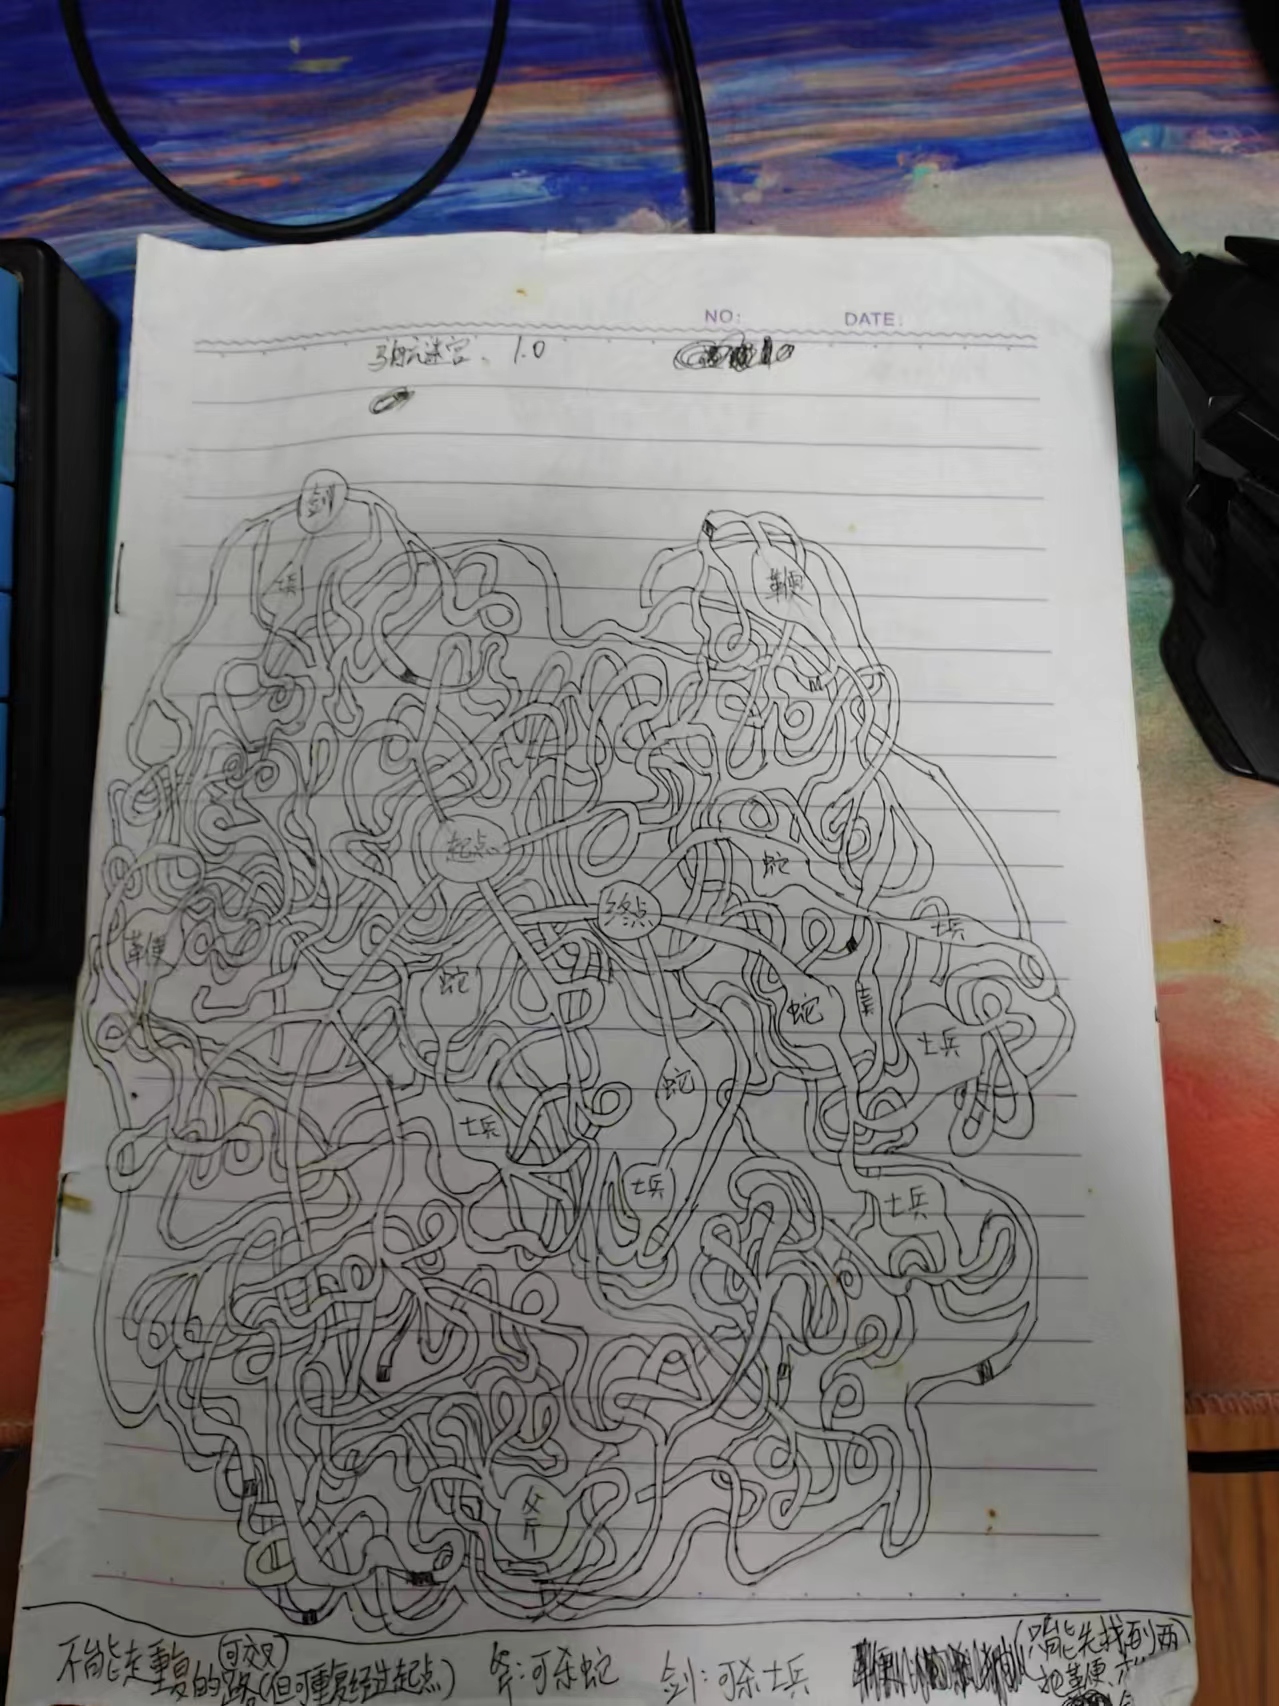 NO: DATE:
迷宫 1.0
剑
兵
鞭
起点
蛇
终点
士兵
鞭
蛇
蛇
士兵
蛇
士兵
士兵
士兵
斧
不能走重复的路(可交叉)(但可重复经过起点) 斧:可杀蛇 剑:可杀士兵 (只能先找到两
把鞭